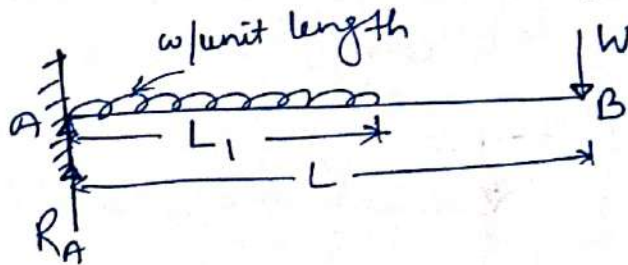 w/unit length
W
A
B
L1
L
RA